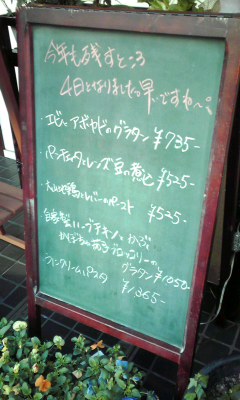 今年も残すところ
4日となりましたっ早いですね〜。
・エビとアボカドのグラタン ¥735-
・パンチェッタとレンズ豆の煮込 ¥525-
鴨とレバーのペースト ¥525-
自家製ハーブチキンと
かぼちゃ ブロッコリーの
グラタン ¥1050-
クリームパスタ
¥1,365-